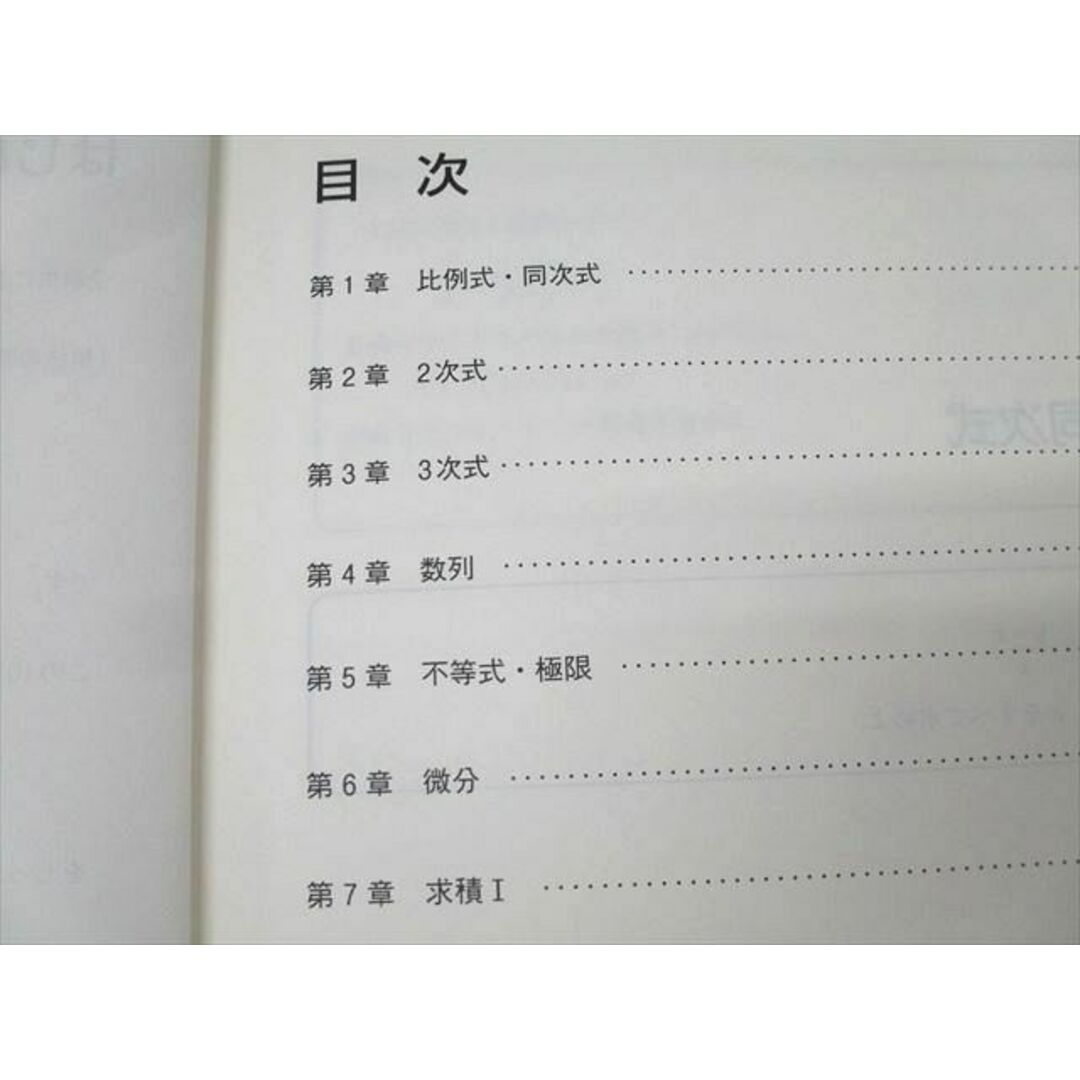 目 次
第1章 比例式・同次式
第2章 2次式
第3章 3次式
第4章 数列
第5章 不等式・極限
第6章 微分
第7章 求積Ⅰ